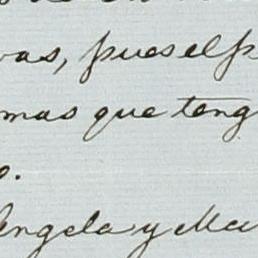 vas, pues el p
mas que teng
o.
Angela y Ma